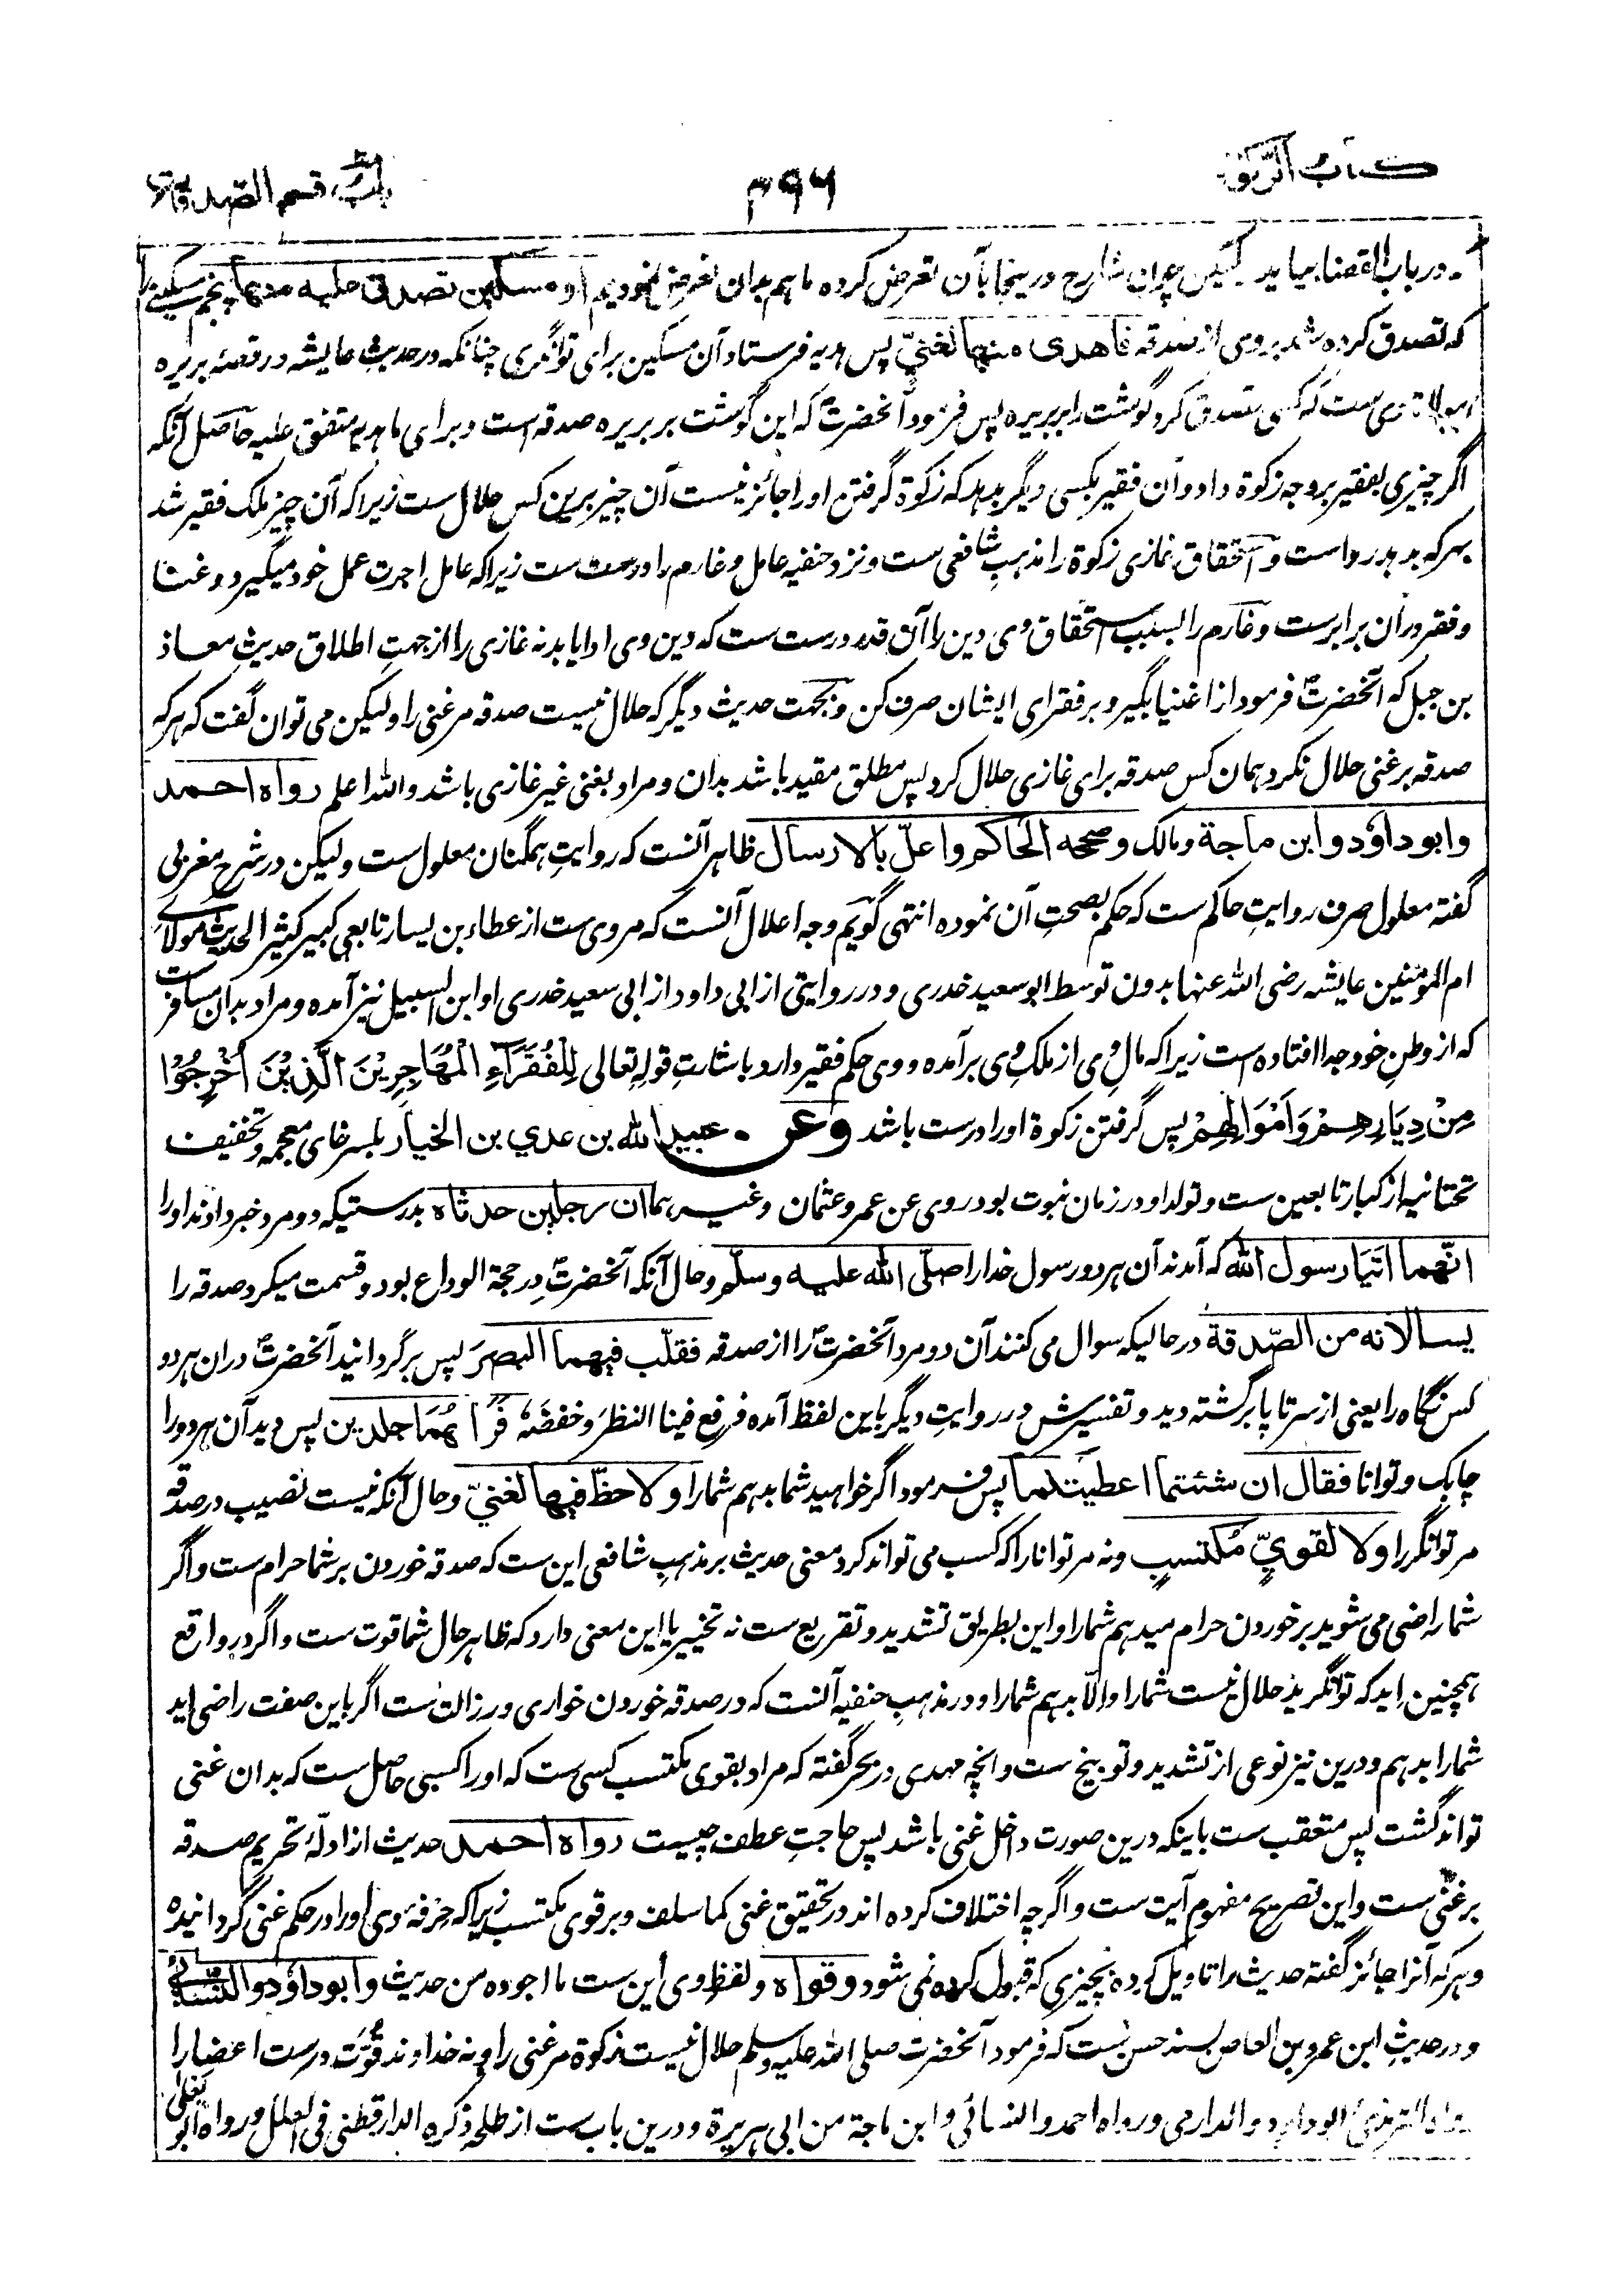 کتاب الزکوة
۳۹۶
باب قسم الصدقات
در باب القضا بیاید لیکن چون شارح درینجا بآن تعرض کرده ما هم بدان تعرض نمودیم او مسکین تصدق علیه منها پنجم مسکینے را
که تصدق کرده شد بروی از صدقه فاهدی منها لغنیّ پس هدیه فرستاد آن مسکین برای توانگری چنانکه در حدیث عایشه در قصهٔ بریره
ست که کسی تصدق کرد گوشت را بر بریره پس فرمود آنحضرتؐ که این گوشت بر بریره صدقه است و برای ما هدیه متفق علیه حاصل آنکه
اگر چیزی بفقیر بر وجه زکوة داد و آن فقیر بکسی دیگر بدهد که زکوة گرفتن او را جائز نیست آن چیز برین کس حلال ست زیرا که آن چیز ملک فقیر شد
بهر که بدهد رواست و استحقاق غازی زکوة را مذهب شافعی ست و نزد حنفیه عامل و غارم را درست ست زیرا که عامل اجرت عمل خود میگیرد و غنا
و فقر دران برابرست و غارم را بسبب استحقاق وی دین را آن قدر درست ست که دین وی ادا یابد نه غازی را از جهتِ اطلاق حدیثِ معاذ
بن جبل که آنحضرتؐ فرمود از اغنیا بگیر و بر فقرای ایشان صرف کن و بجهت حدیث دیگر که حلال نیست صدقه مر غنی را و لیکن می توان گفت که هر که
صدقه بر غنی حلال نکرد همان کس صدقه برای غازی حلال کرد پس مطلق مقید باشد بدان و مراد بغنی غیر غازی باشد والله اعلم رواه احمد
وابو داؤد وابن ماجة ومالک وصححه الحاکم واعلّ بالارسال ظاهر آنست که روایتِ همگنان معلول ست و لیکن در شرح مغربی
گفته معلول صرف روایتِ حاکم ست که حکم بصحتِ آن نموده انتهی گویم وجه اعلال آنست که مروی ست از عطاء بن یسار تابعی کبیر کثیر الحدیث مولای
ام المؤمنین عایشه رضی الله عنها بدون توسط ابو سعید خدری و در روایتی از ابی داود از ابی سعید خدری او ابن السبیل نیز آمده و مراد بدان مسافرست
که از وطن خود جدا افتاده است زیرا که مالِ وی از ملکِ وی برآمده و وی حکم فقیر دارد باشارتِ قوله تعالی لِلْفُقَرَآءِ الْمُهَاجِرِیْنَ الَّذِیْنَ اُخْرِجُوْا
مِنْ دِیَارِهِمْ وَاَمْوَالِهِمْ پس گرفتن زکوة او را درست باشد وعن عبید الله بن عدي بن الخیار بکسر خای معجمه و تخفیف
تحتانیه از کبار تابعین ست و تولد او در زمان نبوت بود روی عن عمر وعثمان وغیرهما ان رجلین حدثاه بدرستیکه دو مرد خبر دادند او را
انّهما اتَیَا رسول الله که آمدند آن هر دو رسول خدا را صلّی الله علیه وسلّم و حال آنکه آنحضرتؐ در حجة الوداع بود و قسمت میکرد صدقه را
یسالانه من الصّدقة در حالیکه سوال می کنند آن دو مرد آنحضرتؐ را از صدقه فقلّب فیهما البصرَ پس برگردانید آنحضرتؐ دران هر دو
کس نگاه را یعنی از سر تا پا برگشته دید و تفسیرش در روایتِ دیگر باین لفظ آمده فرفع فینا النظرَ وخفضَهٗ فَرَاٰهُمَا جلدین پس دید آن هر دو را
چابک و توانا فقال ان شئتما اعطیتکما پس فرمود اگر خواهید شما بدهم شما را ولا حظّ فیها لغنیّ و حال آنکه نیست نصیب در صدقه
مر توانگر را ولا لقویّ مُکتسبٍ و نه مر توانا را که کسب می تواند کرد معنی حدیث بر مذهبِ شافعی این ست که صدقه خوردن بر شما حرام ست و اگر
شما راضی می شوید بر خوردن حرام میدهم شما را و این بطریق تشدید و تقریع ست نه تخییر یا این معنی دارد که ظاهر حال شما قوت ست و اگر در واقع
همچنین اید که توانگرید حلال نیست شما را والّا بدهم شما را و در مذهبِ حنفیه آنست که در صدقه خوردن خواری و رزالت ست اگر باین صفت راضی اید
شما را بدهم و درین نیز نوعی از تشدید و توبیخ ست و انچه مهدی در بحر گفته که مراد بقوی مکتسب کسی ست که او را کسبی حاصل ست که بدان غنی
تواند گشت پس متعقب ست باینکه درین صورت داخل غنی باشد پس حاجتِ عطف چیست رواه احمد حدیث از ادلّهٔ تحریم صدقه
بر غنی ست و این تصریح مفهوم آیت ست و اگرچه اختلاف کرده اند در تحقیق غنی کما سلف و بر قوی مکتسب زیرا که حرفهٔ وی او را در حکم غنی گردانیده
و هر که آنرا جائز گفته حدیث را تاویل کرده بچیزی که قبول کرده نمی شود وقواه و لفظ وی این ست ما اجوده من حدیث وابو داؤد والنسائی
و در حدیثِ ابن عمرو بن العاص بسند حسن ست که فرمود آنحضرت صلی الله علیه وسلم حلال نیست زکوة مر غنی را و نه خداوند قُوّت درست اعضا را
رواه الترمذی وابو داود والدارمی ورواه احمد والنسائی وابن ماجة من ابی هریرة و درین باب ست از طلحه ذکره الدارقطنی فی العلل ورواه ابو یعلی